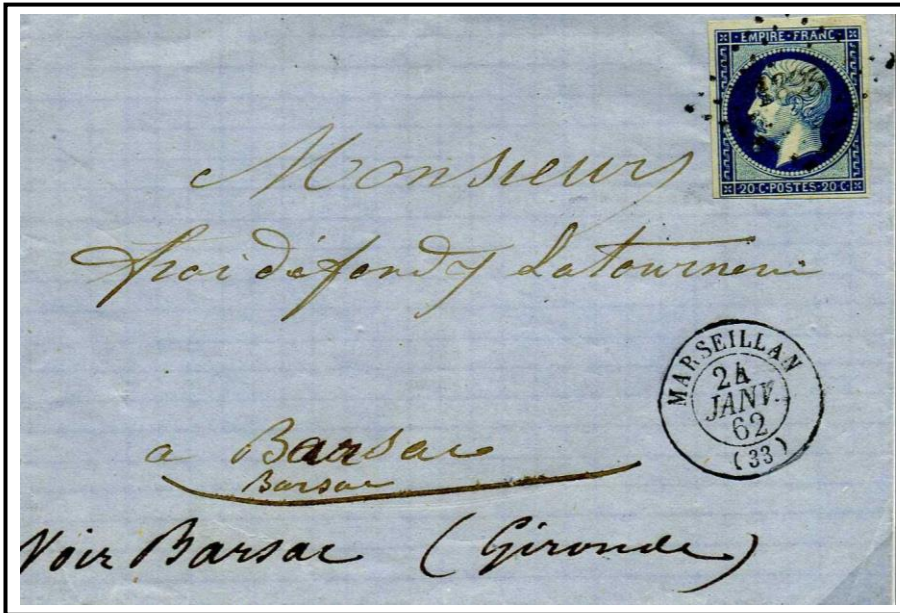 EMPIRE · FRANC ·
20 C · POSTES · 20 C ·
Monsieur
Latourneri
MARSEILLAN
24
JANV.
62
(33)
a Barsac
Barsac
Voir Barsac (Gironde)